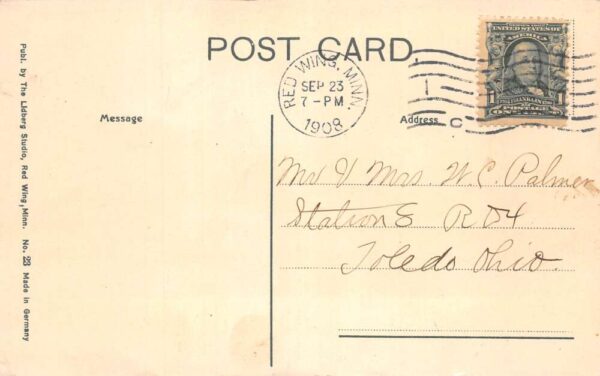 POST CARD.
RED WING, MINN.
SEP 23
7-PM
1908
C
UNITED STATES OF
AMERICA
FRANKLIN
1
1
ONE CENT
Message
Address
Mr & Mrs. W. C. Palmer
Station S R D 4
Toledo Ohio.
Publ. by The Lidberg Studio, Red Wing, Minn. No. 23 Made in Germany